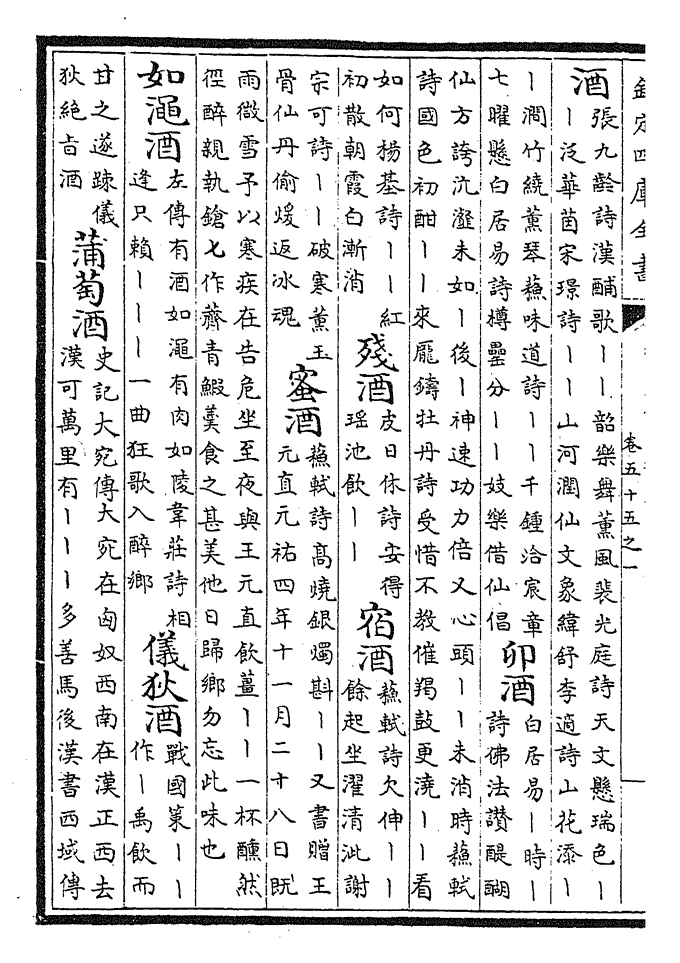 欽定四庫全書 卷五十五之一
酒 張九齡詩漢酺歌丨丨韶樂舞薰風裴光庭詩天文懸瑞色丨
丨泛華茵宋璟詩丨丨山河潤仙文象緯舒李適詩山花添丨
丨澗竹繞薰琴蘓味道詩丨丨千鍾洽宸章
七曜懸白居易詩樽罍分丨丨妓樂借仙倡
卯酒 白居易丨時丨
詩佛法讚醍醐
仙方誇沆瀣未如丨後丨神速功力倍又心頭丨丨未消時蘓軾
詩國色初酣丨丨來龎鑄牡丹詩受惜不教催羯鼓更澆丨丨看
如何楊基詩丨丨紅
初散朝霞白漸消
殘酒 皮日休詩安得
瑶池飲丨丨
宿酒 蘓軾詩欠伸丨丨
餘起坐濯清泚謝
宗可詩丨丨破寒薰玉
骨仙丹偷煖返冰魂
蜜酒 蘓軾詩髙燒銀燭斟丨丨又書贈王
元直元祐四年十一月二十八日既
雨微雪予以寒疾在告危坐至夜與王元直飲薑丨丨一杯醺然
徑醉親執鎗匕作薺青鰕羹食之甚美他日歸鄉勿忘此味也
如澠酒 左傳有酒如澠有肉如陵韋莊詩相
逢只賴丨丨丨一曲狂歌入醉鄉
儀狄酒 戰國策丨丨
作丨禹飲而
甘之遂踈儀
狄絶㫖酒
蒲萄酒 史記大宛傳大宛在匈奴西南在漢正西去
漢可萬里有丨丨丨多善馬後漢書西域傳